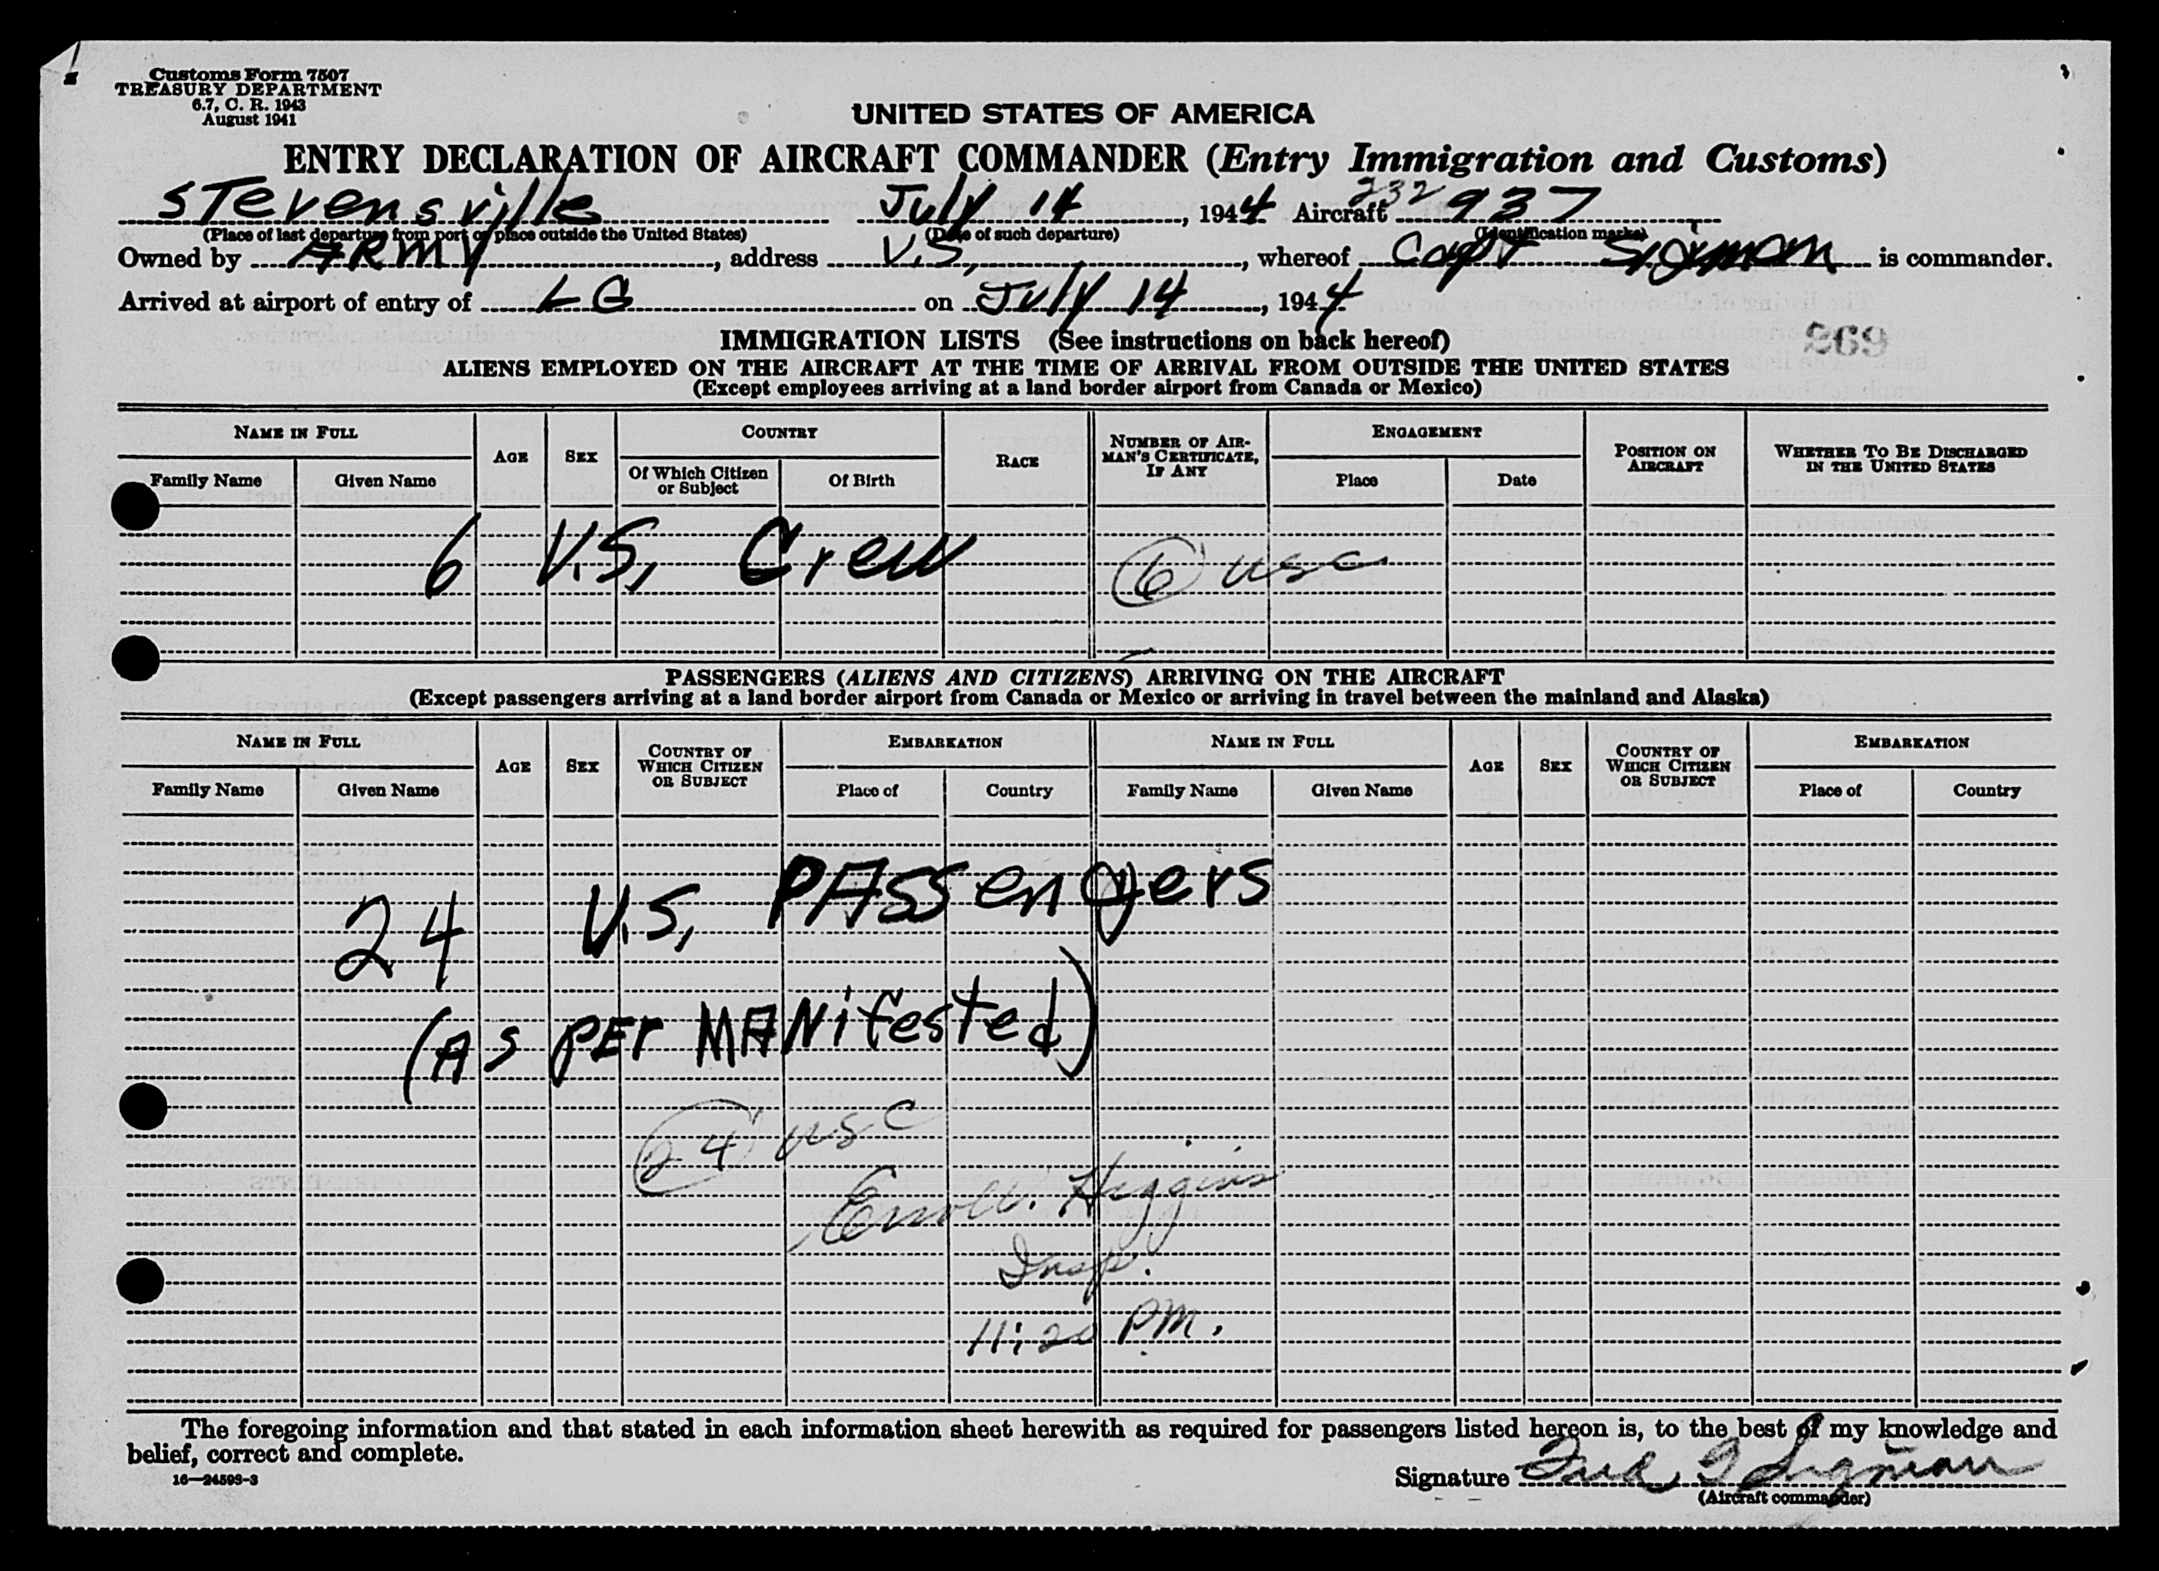 Customs Form 7507
TREASURY DEPARTMENT
6.7, C. R. 1943
August 1941
UNITED STATES OF AMERICA
ENTRY DECLARATION OF AIRCRAFT COMMANDER (Entry Immigration and Customs)
STevensville July 14, 1944 Aircraft 232 937
(Place of last departure from port or place outside the United States) (Date of such departure) (Identification marks)
Owned by ARMY, address U.S., whereof Capt Sigman is commander.
Arrived at airport of entry of LG on July 14, 1944
IMMIGRATION LISTS (See instructions on back hereof)
269
ALIENS EMPLOYED ON THE AIRCRAFT AT THE TIME OF ARRIVAL FROM OUTSIDE THE UNITED STATES
(Except employees arriving at a land border airport from Canada or Mexico)
NAME IN FULL AGE SEX COUNTRY RACE NUMBER OF AIRMAN'S CERTIFICATE, IF ANY ENGAGEMENT POSITION ON AIRCRAFT WHETHER TO BE DISCHARGED IN THE UNITED STATES
Family Name Given Name Of Which Citizen or Subject Of Birth Place Date
6 U.S. Crew 6 USC
PASSENGERS (ALIENS AND CITIZENS) ARRIVING ON THE AIRCRAFT
(Except passengers arriving at a land border airport from Canada or Mexico or arriving in travel between the mainland and Alaska)
NAME IN FULL AGE SEX COUNTRY OF WHICH CITIZEN OR SUBJECT EMBARKATION NAME IN FULL AGE SEX COUNTRY OF WHICH CITIZEN OR SUBJECT EMBARKATION
Family Name Given Name Place of Country Family Name Given Name Place of Country
24 U.S. PASSengers
(AS PEr MANifested)
24 USC
Higgins
Insp.
11:20 PM.
The foregoing information and that stated in each information sheet herewith as required for passengers listed hereon is, to the best of my knowledge and
belief, correct and complete.
16—24599-3
Signature Sigman
(Aircraft commander)